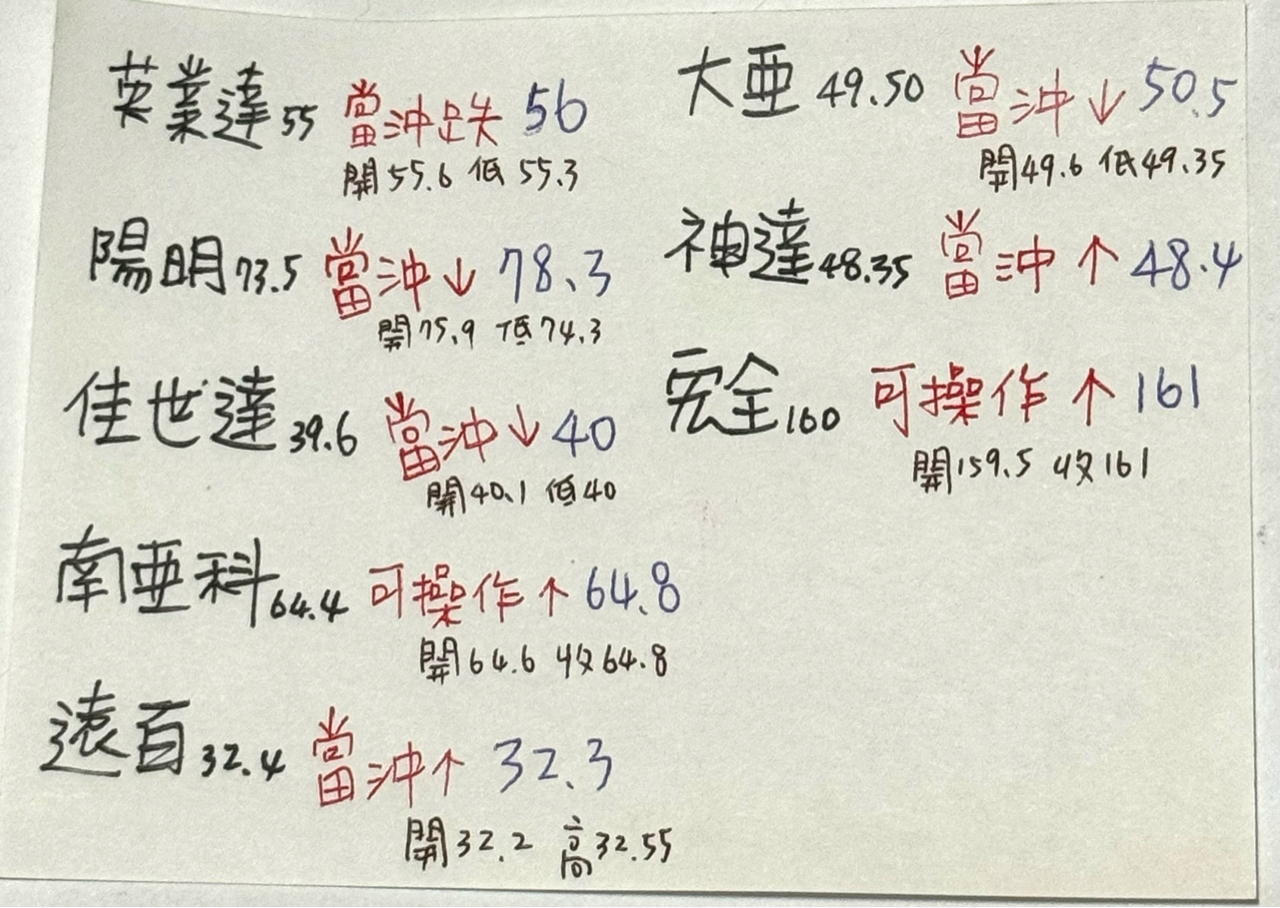 英業達55 當沖跌 56
開55.6 低55.3
陽明73.5 當沖↓ 78.3
開75.9 低74.3
佳世達39.6 當沖↓40
開40.1 低40
南亜科64.4 可操作↑64.8
開64.6 收64.8
遠百32.4 當沖↑ 32.3
開32.2 高32.55
大亜49.50 當沖↓50.5
開49.6 低49.35
神達48.35 當沖↑48.4
宏全160 可操作↑161
開159.5 收161